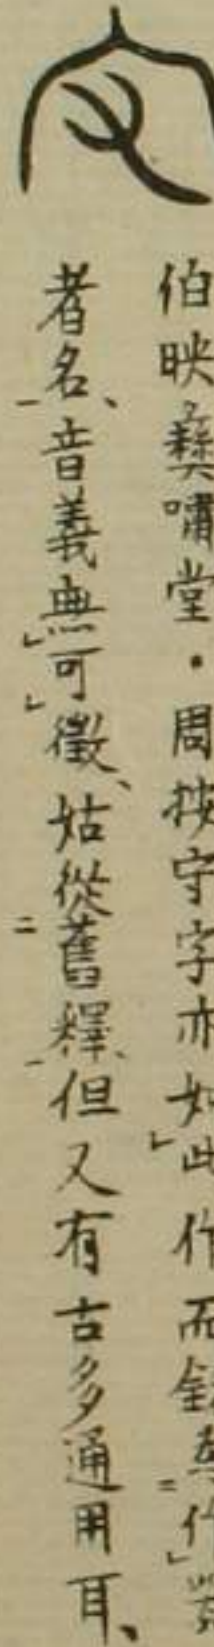 伯映彝嘯堂・周按守字亦如此作而銘
者名、音義無可徵、姑從舊釋、但又有古多通用耳、